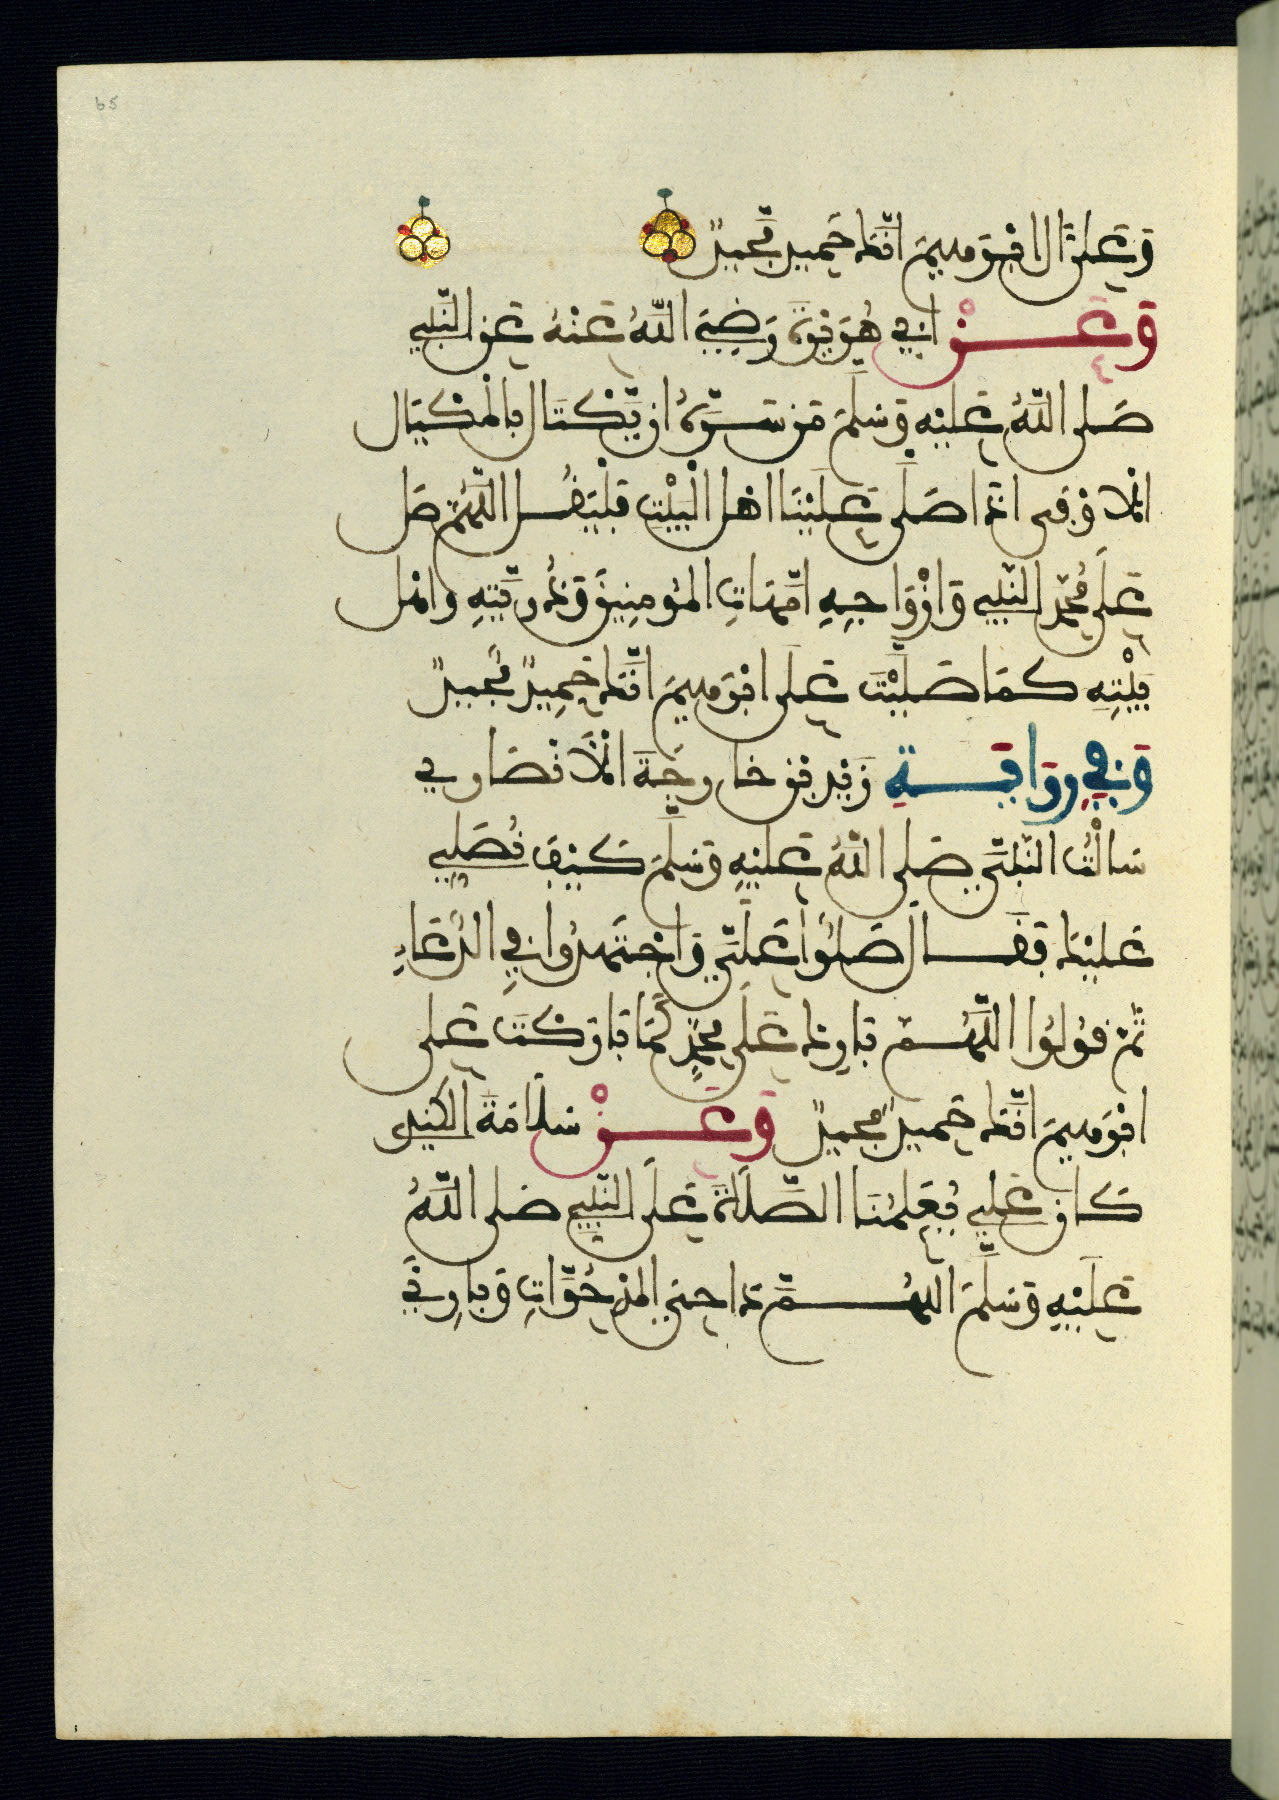 65
وَعَلىٰ ءَالِ ابْرَهِيمَ انَّكَ حَمِيدٌ مَّجِيدٌ
وَعَنْ ابِي هُرَيْرَةَ رَضِيَ اللَّهُ عَنْهُ عَنِ النَّبِيِّ
صَلى اللَّهُ عَلَيْهِ وَسَلَّمَ مَن سَرَّهُ ان يَّكْتَالَ بِالْمِكْيَالِ
الَاوْفَى اذَا صَلَّى عَلَيْنَا اهْلَ الْبَيْتِ فَلْيَقُلِ اللَّهُمَّ صَلِّ
عَلَى مُحَمَّدٍ النَّبِيءِ وَأَزْوَاجِهِ امَّهَاتِ الْمُومِنِينَ وَذُرِّيَّتِهِ وَاهْلِ
بَيْتِهِ كَمَا صَلَّيْتَ عَلَى ابْرَهِيمَ انَّكَ حَمِيدٌ مَّجِيدٌ
وَفِي رِوَايَةِ زَيْدِ بْنِ خَارِجَةَ الَانْصَارِي
سَالْتُ النَّبِيَّ صَلى اللَّهُ عَلَيْهِ وَسَلَّمَ كَيْفَ نُصَلِّي
عَلَيْكَ فَقَالَ صَلُّوا عَلَيَّ وَاجْتَهِدُوا فِي الدُّعَاءِ
ثُمَّ قُولُوا اللَّهُمَّ بَارِكْ عَلَى مُحَمَّدٍ كَمَا بَارَكْتَ عَلَى
ابْرَهِيمَ انَّكَ حَمِيدٌ مَّجِيدٌ وَعَنْ سَلَامَةَ الْكِنْدِي
كَانَ عَلِيٌّ يُعَلِّمُنَا الصَّلَاةَ عَلَى النَّبِيءِ صَلى اللَّهُ
عَلَيْهِ وَسَلَّمَ اللَّهُمَّ دَاحِيَ الْمَدْحُوَّاتِ وَبَارِئَ